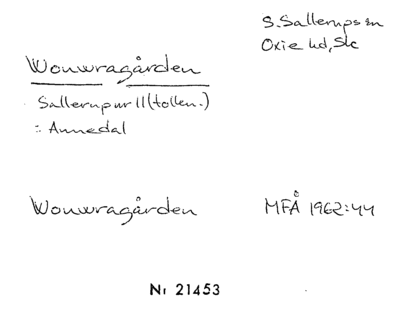 S. Sallerups sn
Oxie hd, Sk
Wowragården
Sallerup nr 11 (tollen.)
= Annedal
Wowragården
MFÅ 1962:44
Nr 21453